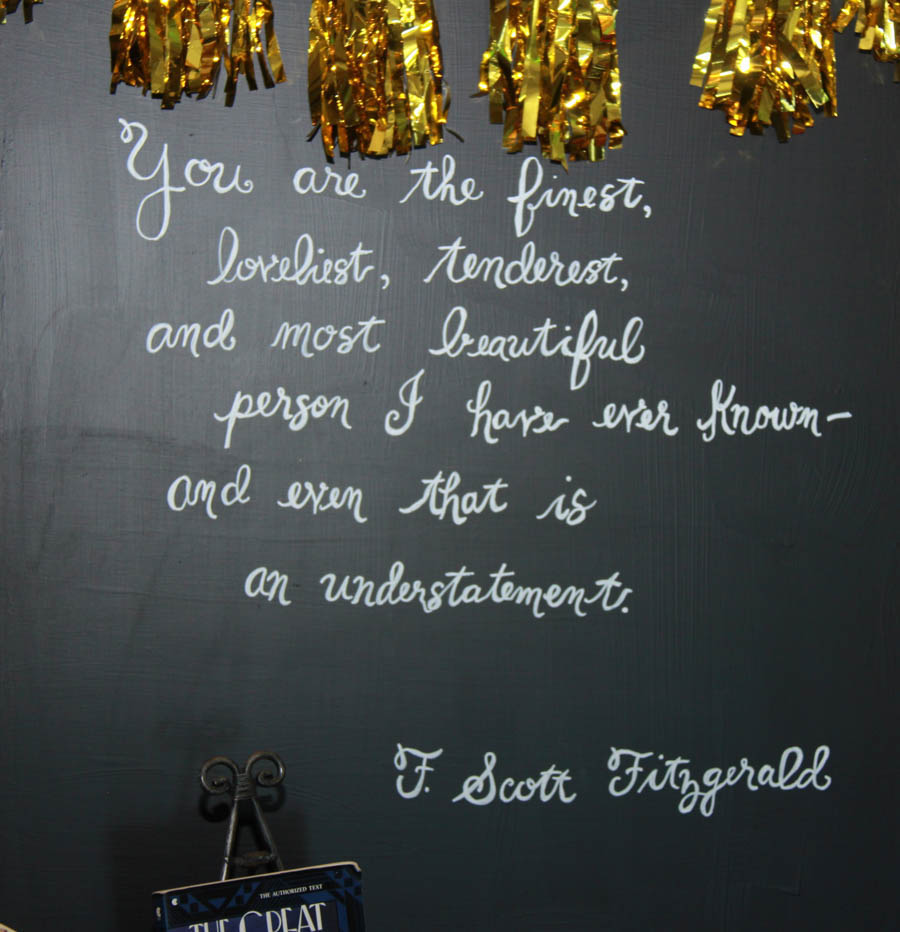 You are the finest,
loveliest, tenderest,
and most beautiful
person I have ever known-
and even that is
an understatement.
F. Scott Fitzgerald
THE AUTHORIZED TEXT
THE GREAT